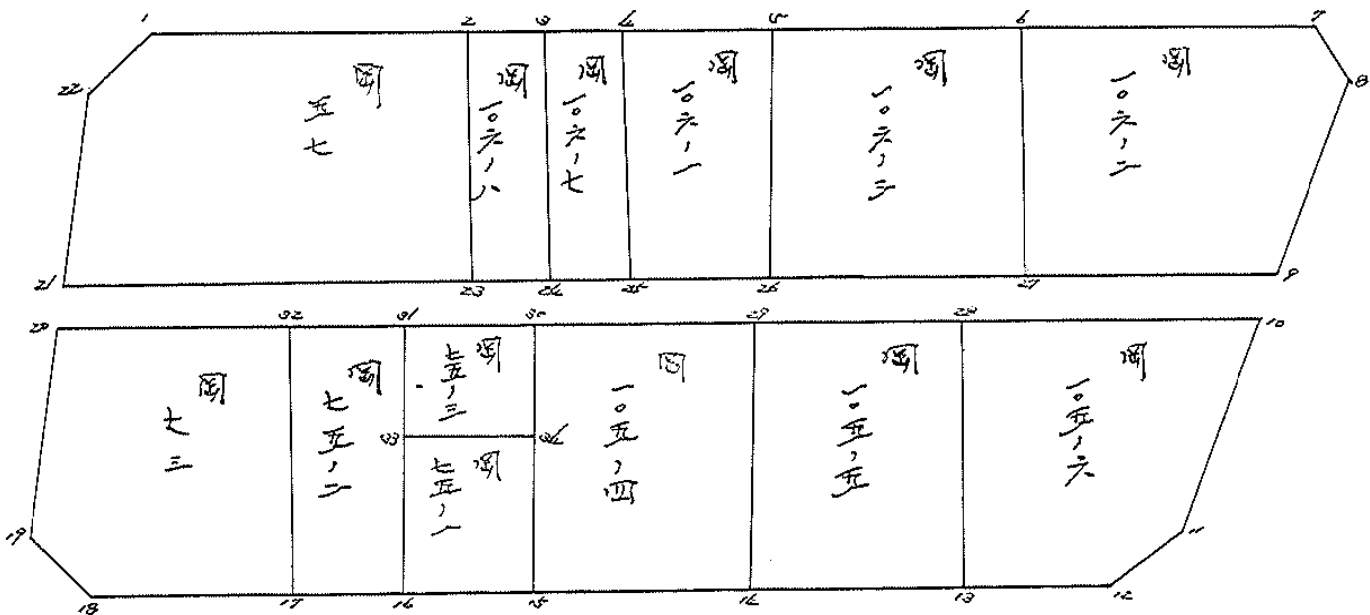 1
2
3
4
5
6
7
8
22
岡
五七
岡
一〇六ノ八
岡
一〇六ノ七
岡
一〇六ノ一
岡
一〇六ノ三
岡
一〇六ノ二
21
23
24
25
26
27
9
20
32
31
30
29
28
10
岡
七三
岡
七五ノ二
岡
七五ノ三
33
34
岡
七五ノ一
一〇五ノ四
岡
一〇五ノ五
岡
一〇五ノ六
19
18
17
16
15
14
13
12
11